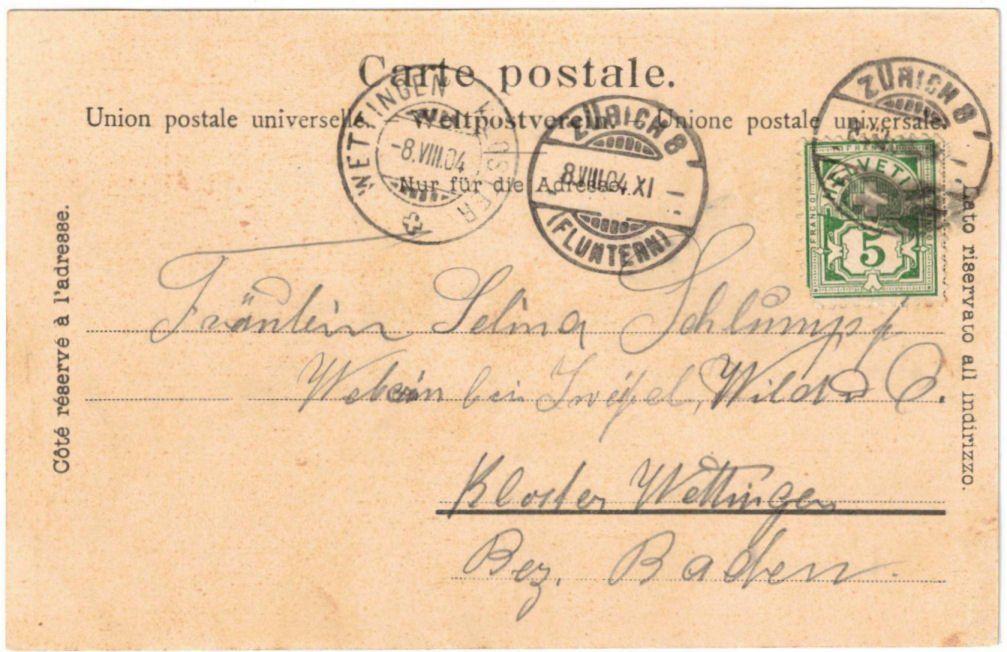 Carte postale.
Union postale universelle. Weltpostverein. Unione postale universale.
Nur für die Adresse.
Côté réservé à l'adresse.
Lato riservato all indirizzo.
WETTINGEN KLOSTER
-8.VIII.04
ZÜRICH 8
8.VIII.04.XI
(FLUNTERN)
ZÜRICH 8
FRANCO
HELVETIA
5
Fräulein Selina Schlumpf
Weberin bei Wild &
Kloster Wettingen
Bez. Baden.